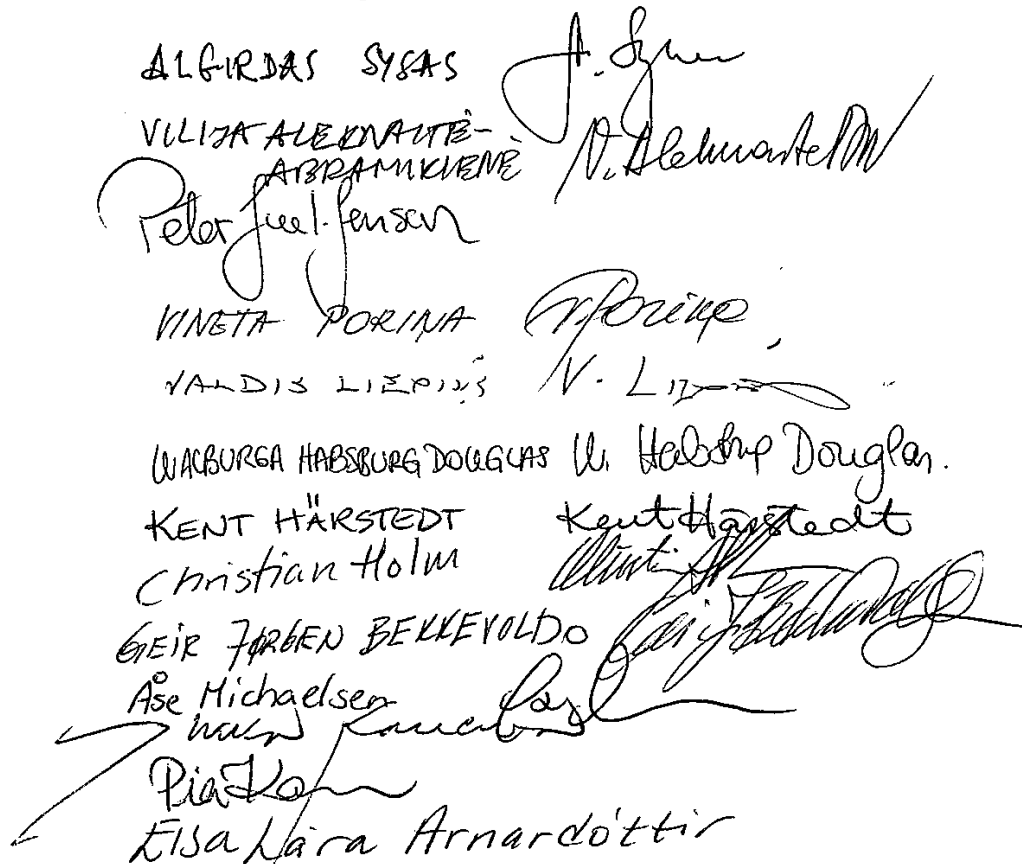 ALGIRDAS SYSAS A. Sysas
VILIJA ALEKNAITĖ- V. Aleknaitė
ABRAMIKIENĖ
Peter Juel-Jensen
VINETA PORIŅA V. Poriņa
VALDIS LIEPIŅŠ V.
WALBURGA HABSBURG DOUGLAS W. Habsburg Douglas.
KENT HÄRSTEDT Kent Härstedt
Christian Holm
GEIR JØRGEN BEKKEVOLD
Åse Michaelsen
Pia
Elsa Lára Arnardóttir